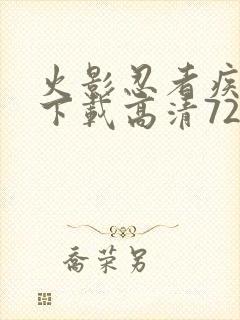 火影忍者疾
下载高清72
乔荣另